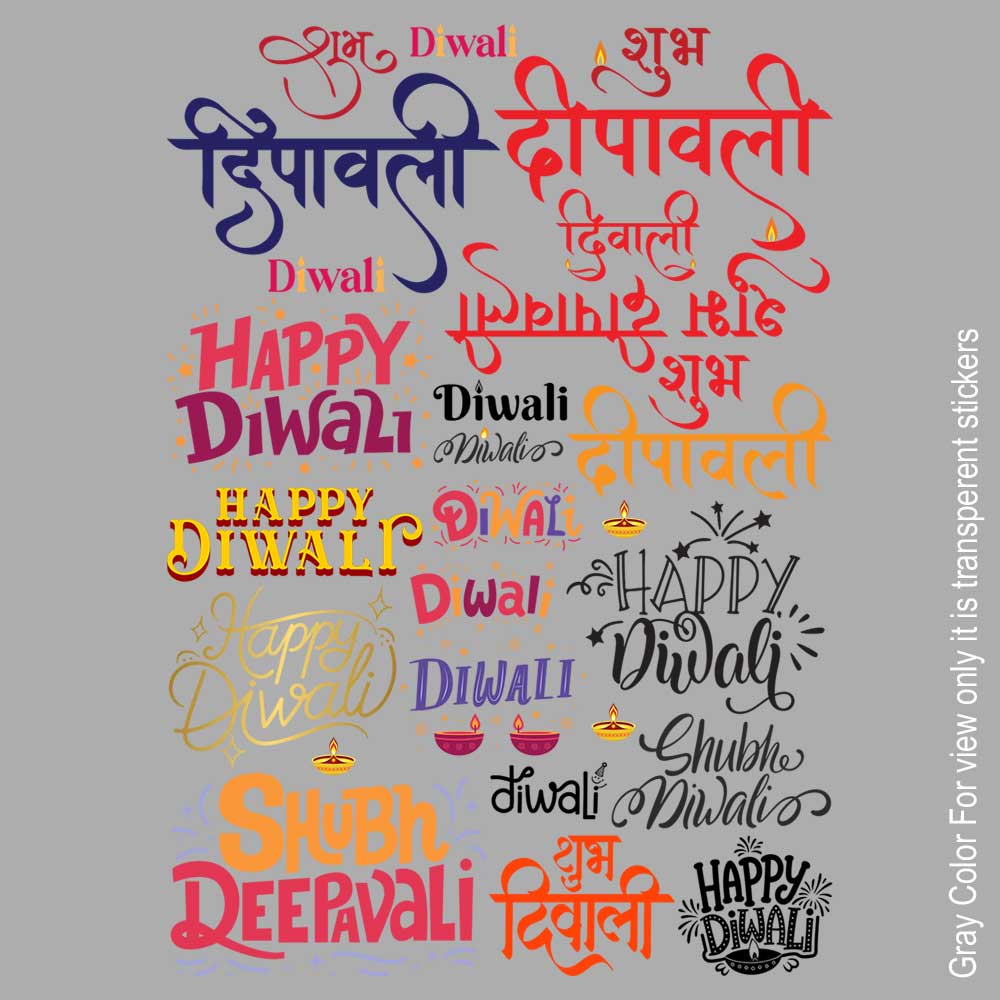 शुभ
Diwali
शुभ
दिपावली
दीपावली
दिवाली
Diwali
शुभ दीपावली
HAPPY
DIWALI
शुभ
दीपावली
Diwali
Diwali
HAPPY
DIWALI
DIWALI
HAPPY
Diwali
Diwali
Happy
Diwali
DIWALI
Shubh
Diwali
diwali
SHUBH
DEEPAVALI
शुभ
दिवाली
HAPPY
DIWALI
Gray Color For view only it is transperent stickers